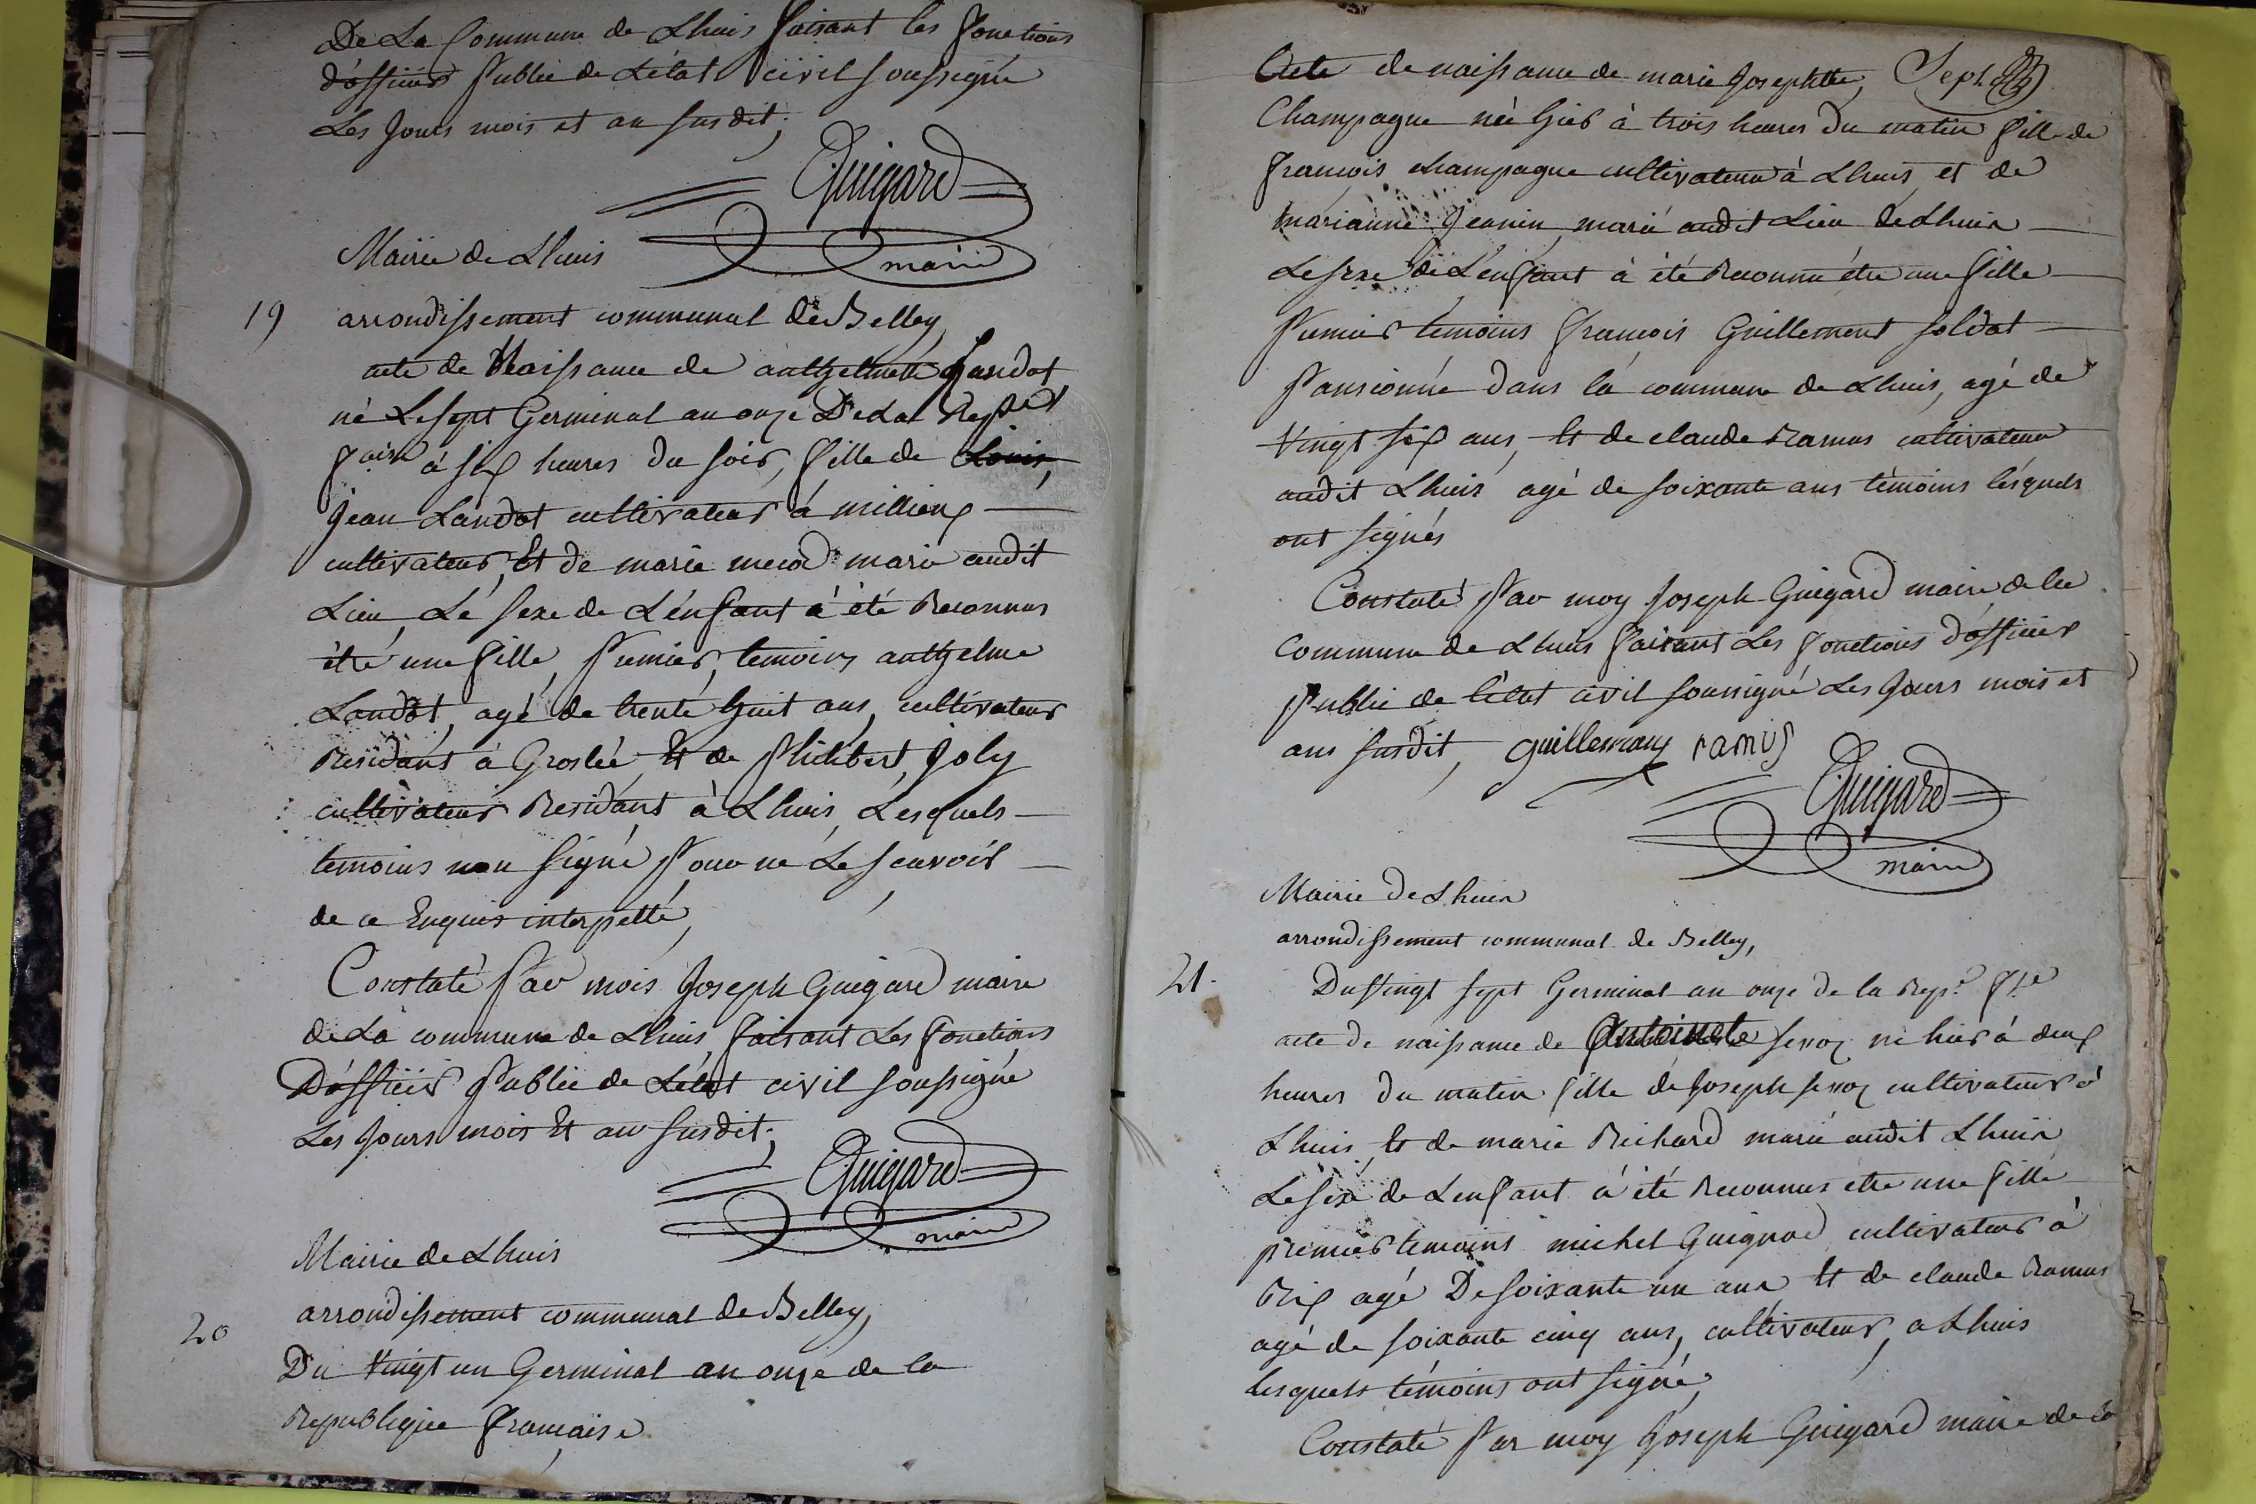 De La Commune de Lhuis faisant les fonctions
d'officier Public de L'état civil soussigné
Les Jours mois et an susdit;
Guigard
maire
Mairie de Lhuis
19
arrondissement communal de Belley,
acte de Naissance de anthelmette Landot
né Le sept Germinal an onze De La
à six heures du soir, fille de Louis,
Jean Landot cultivateur à millieux
cultivateur, Et de marie marié audit
Lieu, Le sexe de L'enfant à été Reconnus
être une fille, Premier, temoins anthelme
Landot, agé de trente huit ans, cultivateur
Residant à Groslée, Et de Philibert Joly
cultivateur Residant à Lhuis, Lesquels
temoins non signé Pour ne Le scavoir
de ce Enquis interpellé,
Constaté Par mois Joseph Guigard maire
de La commune de Lhuis faisant Les fonctions
D'officier Public de L'état civil soussigné
Les Jours mois Et an susdit;
Guigard
maire
Mairie de Lhuis
20
arrondissement communal de Belley,
Du Vingt un Germinal an onze de la
Republique française
Acte de naissance de marie Josephtte, Sept
Champagne née hier à trois heures du matin fille de
françois champagne cultivateur à Lhuis et de
marianne Jeanin, marié audit Lieu de Lhuis
Le sexe de L'enfant à été Reconnu être une fille
Premier temoins françois Guillemont soldat
Pansionné dans la commune de Lhuis, agé de
Vingt six ans, Et de claude Ramus cultivateur
audit Lhuis agé de soixante ans témoins lesquels
ont signés
Constaté Par moy Joseph Guigard maire de la
Commune de Lhuis faisant Les fonctions d'officier
Public de l'état civil soussigné Les Jours mois et
ans susdit, ramus
Guigard
maire
Mairie De Lhuis
arrondissement communal de Belley,
21.
Du Vingt sept Germinal an onze de la Rep.e f.se
acte de naissance de Antoinete né hier à deux
heures du matin fille de Joseph cultivateur à
Lhuis Et de marie Richard marié audit Lhuis
Le sexe de L'enfant à été Reconnus être une fille
premier temoins michel cultivateur à
Rix agé De soixante un ans Et de claude Ramus
agé de soixante cinq ans, cultivateur, a Lhuis
lesquels témoins ont signé,
Constaté Par moy Joseph Guigard maire de la